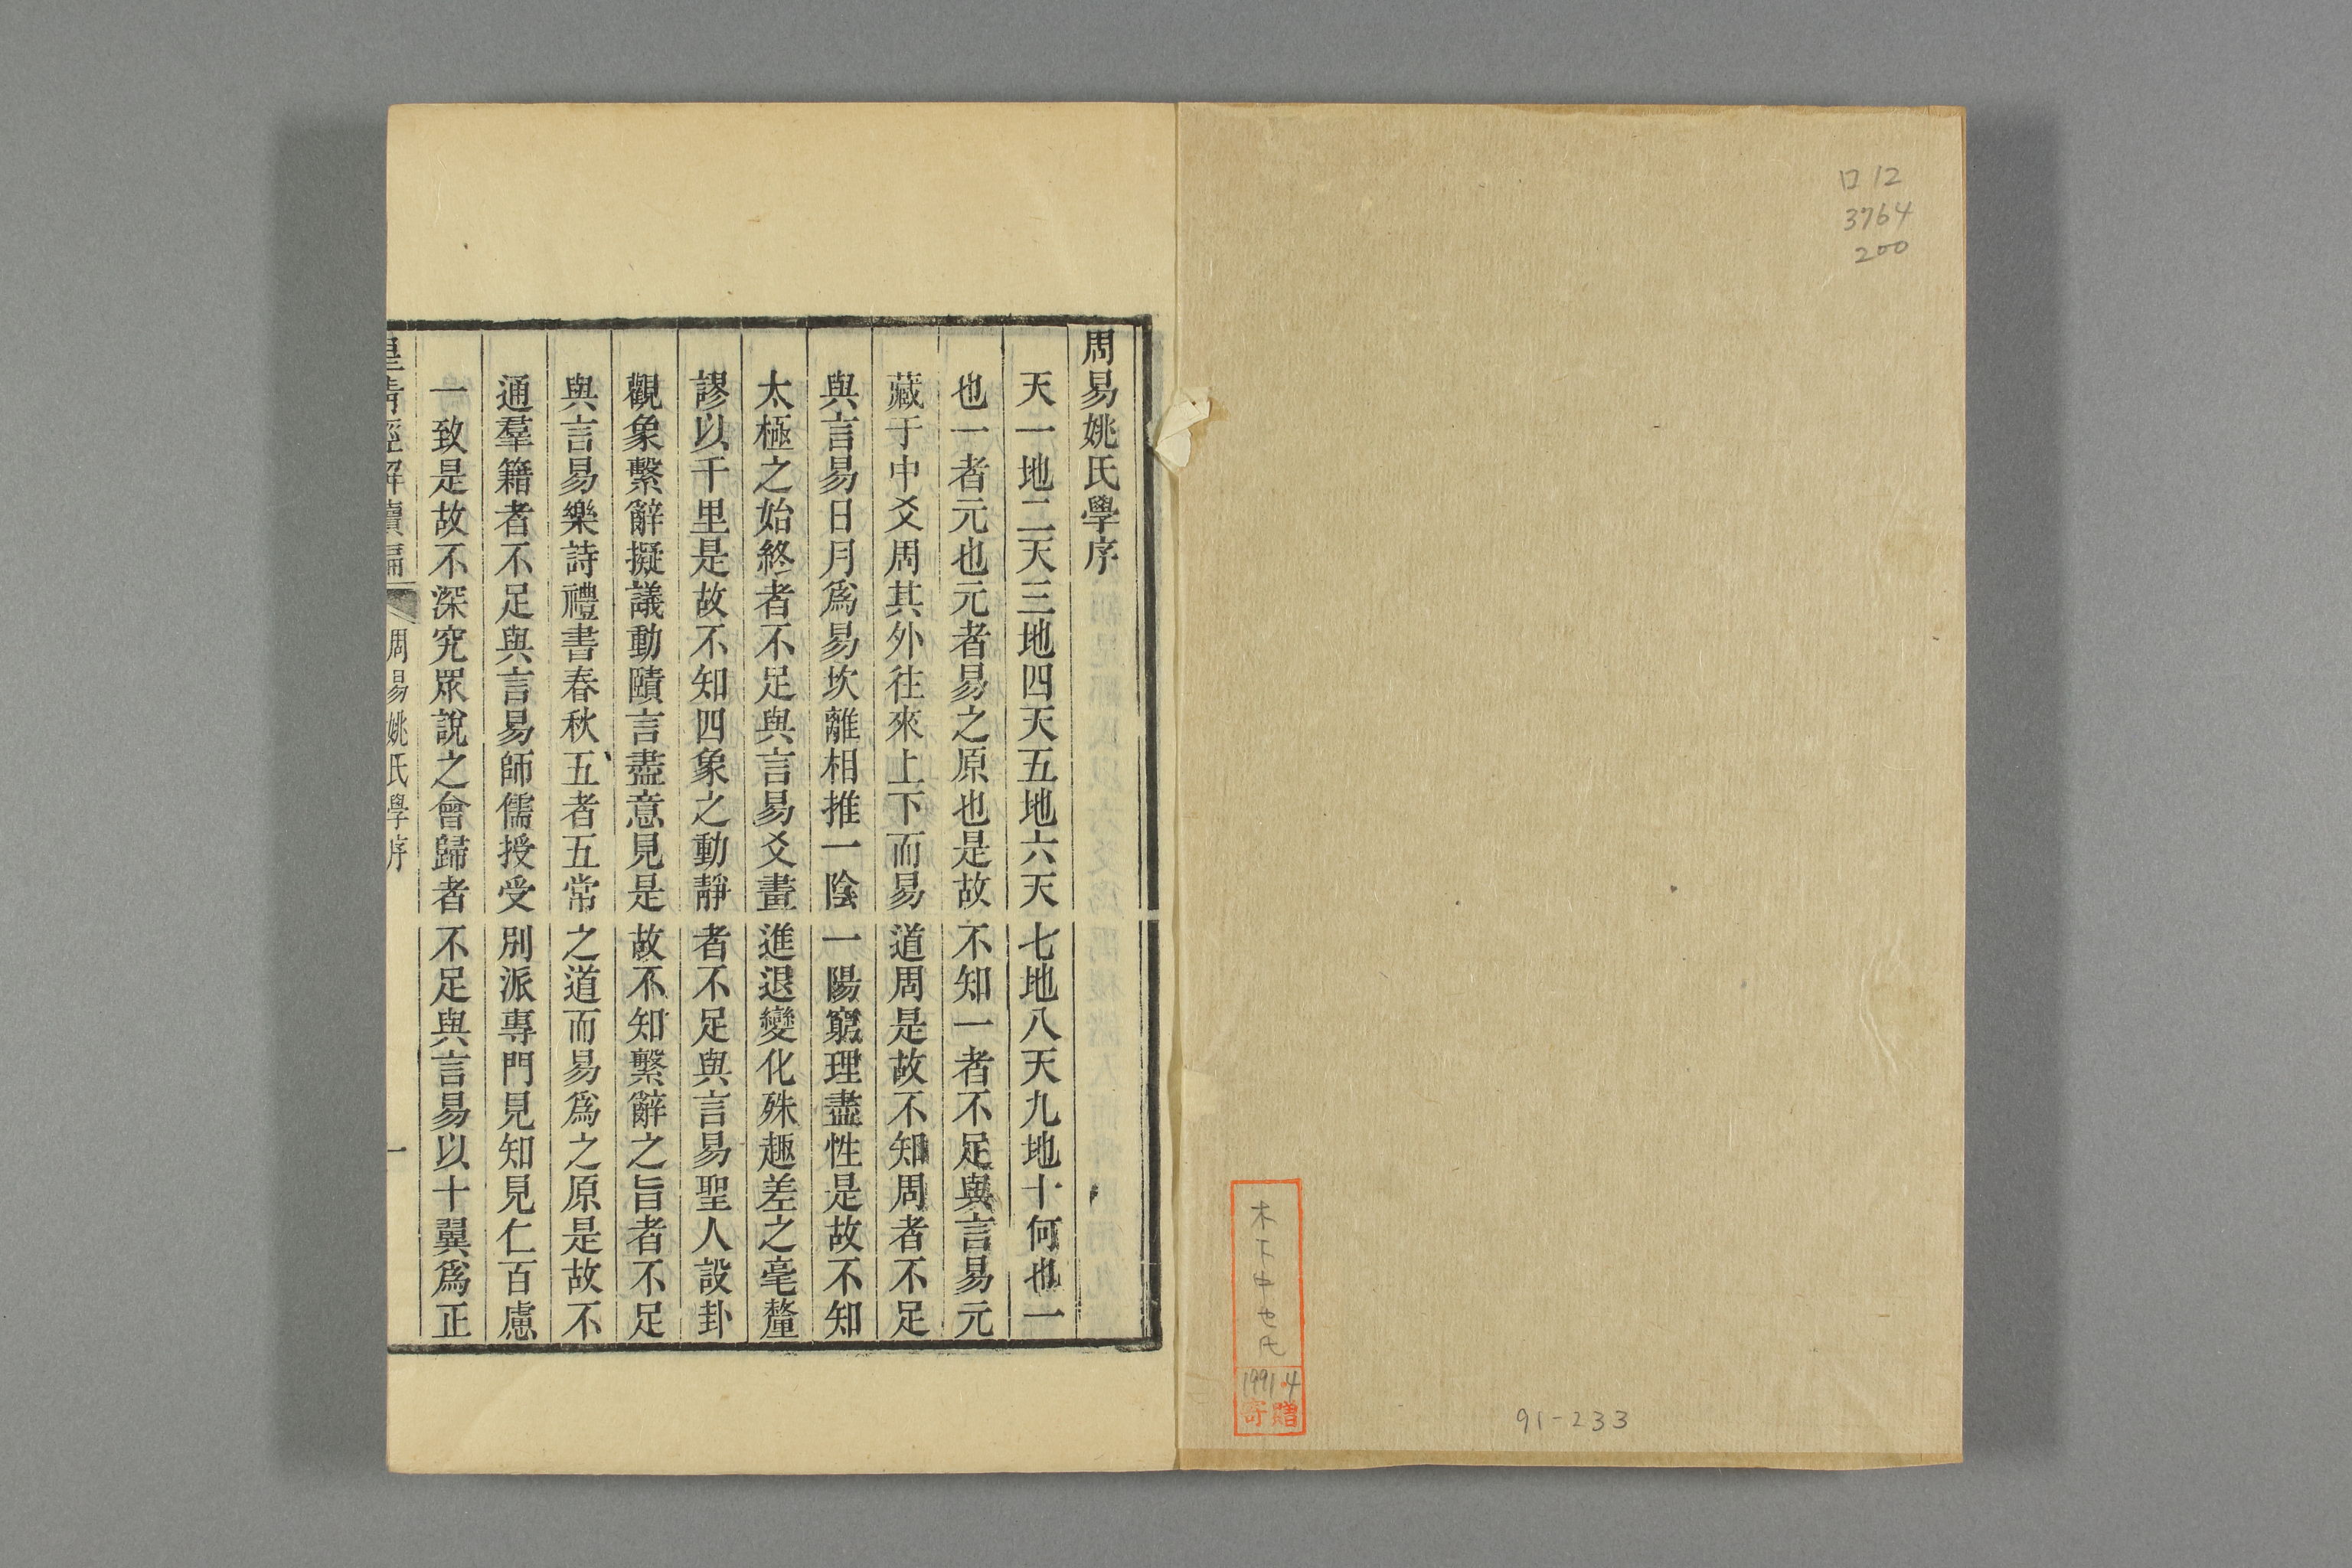 ロ12
3764
200
木下中也氏
1991.4
寄贈
91-233
周易姚氏學序
天一地二天三地四天五地六天七地八天九地十何也一
也一者元也元者易之原也是故不知一者不足與言易元
藏于中爻周其外往來上下而易道周是故不知周者不足
與言易日月爲易坎離相推一陰一陽窮理盡性是故不知
太極之始終者不足與言易爻畫進退變化殊趣差之毫釐
謬以千里是故不知四象之動靜者不足與言易聖人設卦
觀象繫辭擬議動賾言盡意見是故不知繫辭之旨者不足
與言易樂詩禮書春秋五者五常之道而易爲之原是故不
通羣籍者不足與言易師儒授受別派專門見知見仁百慮
一致是故不深究眾說之會歸者不足與言易以十翼爲正
皇清經解續編
周易姚氏學序
一